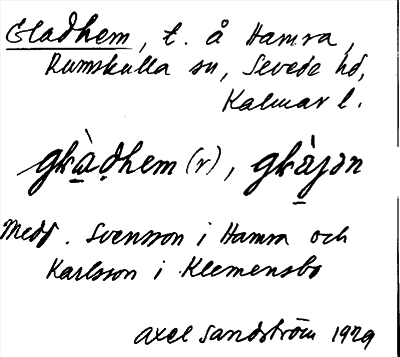 Gladhem, t. å Hamra,
Rumskulla sn, Sevede hd,
Kalmar l.
glàḍhem (r), glàjən
Medd. Svensson i Hamra och
Karlsson i Klemensbo
Axel Sandström 1929